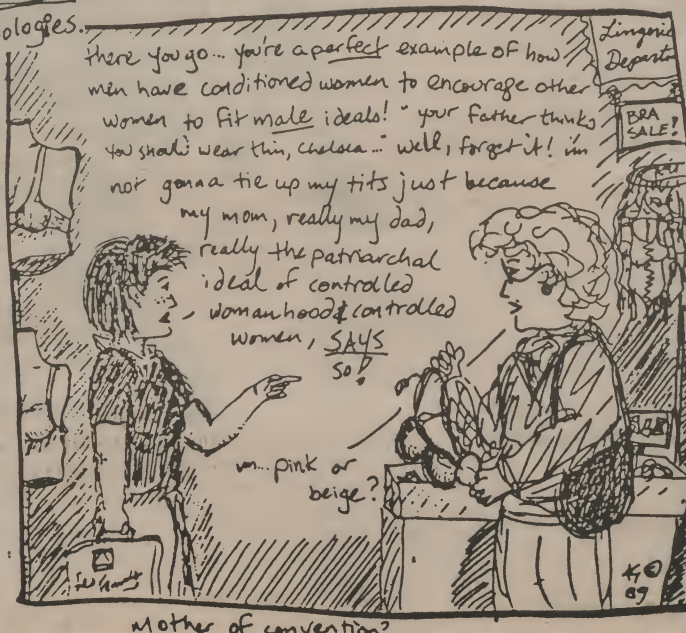 ologies.
there you go... you're a perfect example of how
men have conditioned women to encourage other
women to fit male ideals! "your father thinks
you should wear this, Chelsea..." well, forget it! i'm
not gonna tie up my tits just because
my mom, really my dad,
really the patriarchal
ideal of controlled
womanhood & controlled
women, SAYS
so!
um... pink or
beige?
Lingerie
Departm
BRA
SALE!
©
89
Mother of convention?